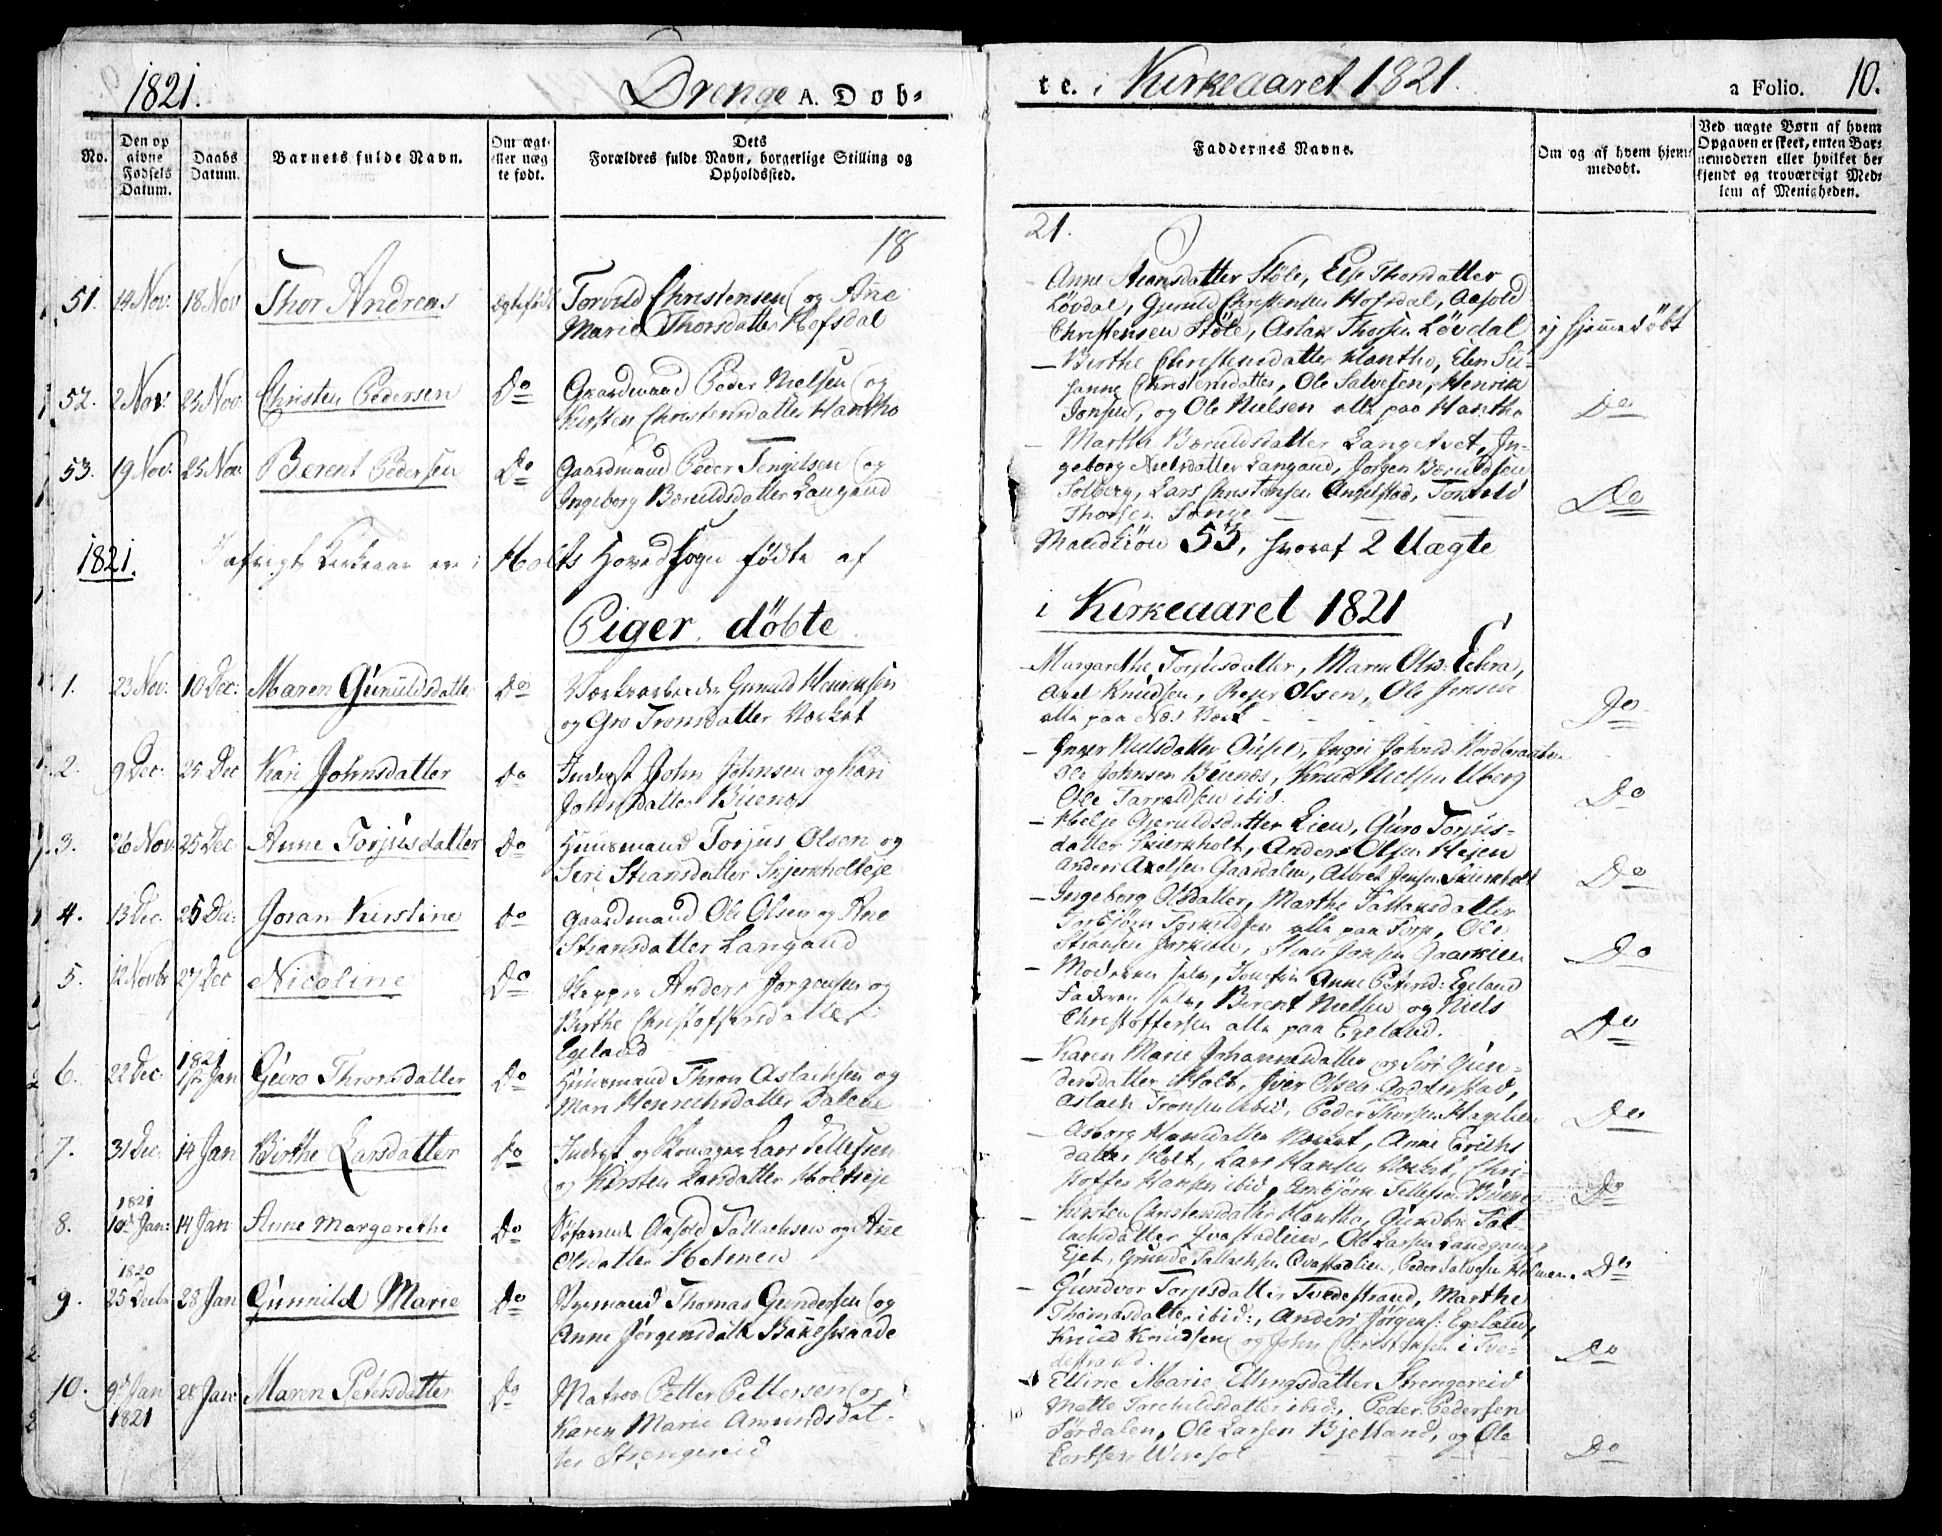 1821.
Drenge A. Døb-
No.
Den op
givne
Fødsels
Datum.
Daabs
Datum.
Barnets fulde Navn.
Om ægt-
eller uæg
te født.
Dets
Forældres fulde Navn, borgerlige Stilling og
Opholdssted.
18
51. 14 Nov: 18 Nov Thor Andreas ægtefødt Torvild Christensen og Ane
Marie Thorsdatter Hofsdal
52. 2 Nov: 25 Nov Christen Pedersen Do Gaardmand Peder Nielsen og
Kirsten Christensdatter Hantho
53. 19 Nov: 25 Nov Berent Pedersen Do Gaardmand Peder Tengelsen og
Ingeborg Bæruldsdatter Langaud
1821. I afvigte Kirkeaar ere i Holts Hovedsogn fødte af
Piger døbte
1. 23 Nov: 10 Dec: Maren Gúnuldsdatter Do Værksarbeider Gunuld Henriksen
og Gro Tronsdatter Værket
2. 9 Dec: 25 Dec Kari Johnsdatter Do Inderst John Johnsen og Kari
Johnsdatter Büenes
3. 26 Nov: 25 Dec Anne Torjúsdatter Do Huusmand Torjus Olsen og
Siri Stiansdatter Skjerkholteje
4. 13 Dec 25 Dec: Joran Kirstine Do Gaardmand Ole Olsen og Ane
Stiansdatter Langaud
5. 12 Novbr 27 Dec Nicoline Do Skipper Anders Jørgensen og
Birthe Christofersdatter
Egeland
6. 22 Dec: 1821 1ste Jan Gúro Thronsdatter Do Huusmand Thron Aslachsen og
Mari Henrichsdatter Dalene
7. 31 Dec: 14 Jan Birthe Larsdatter Do Inderst og Skomager Lars Tellefsen
og Kirsten Larsdatter Holtseje
8. 1821 10de Jan: 14 Jan Anne Margarethe Do Søfarend Aasold Tallachsen og Ane
Olsdatter Holmen
9. 1820 25 Decbr 28 Jan Gúnnild Marie Do Styrmand Thomas Gundersen og
Anne Jørgensdatt Bakeskaade
10. 9de Jan 1821 28 Jan: Maren Petersdatter Do Matros Petter Pettersen og
Karen Marie Amundsdat-
ter Strengereid
te. i Kirkeaaret 1821.
a Folio. 10.
Faddernes Navne.
Om og af hvem hjem-
medøbt.
Ved uægte Børn af hvem
Opgaven er skeet, enten Bar-
nemoderen eller hvilket be-
kjendt og troværdigt Med-
lem af Menigheden.
21.
Anne Stiansdatter Støle, Else Thorsdatter
Løvdal, Gjeruld Christensen Hofsdal, Aasold
Christensen Støle, Aslak Thorsen Løvdal ej hjemmedøbt
- Birthe Christensdatter Hantho, Elen Su-
sanne Christensdatter, Ole Salvesen, Henrik
Jonsen, og Ole Nielsen alle paa Hantho Do
- Martha Bæruldsdatter Langetvet, In-
geborg Nielsdatter Langaud, Jørgen Bæruldsen
Solberg, Lars Christensen Angelstad, Torkild
Thorsen Songe Do
Mandkiøn 53, hvoraf 2 Uægte
i Kirkeaaret 1821
Margarethe Torjúsdatter, Maren Olsd: Eckra,
Axel Knudsen, Rejer Olsen, Ole Jensen
alle paa Næs Værk Do
- Inger Nielsdatter, Ingei Johnsd: Nordbraaten
Ole Johnsen Büenes, Knud Nielsen Uberg
Ole Tarraldsen ibid. Do
- Helje Gjeruldsdatter Lien, Gúro Torjús-
datter Skierkholt, Anders Olsen Hejen
Anders Axelsen Gaasdalen, Albret Jensen Skierkholt Do
- Ingeborg Olsdatter, Marthe Tallaksdatter
Torbjørn Torkildsen alle paa Torp, Ole
Stiansen, Stian Jansen Do
- Moderen selv, Jomfru Anne Petersd: Egeland
Faderen selv, Berent Nielsen og Niels
Christoffersen alle paa Egeland. Do
- Karen Marie Johannesdatter og Siri Gún-
dersdatter Holt, Iver Olsen Godderstad,
Aslach Tronsen ibid, Peder Thorsen Hagelien Do
- Asborg Hansdatter Værket, Anne Erichs
datter Holt, Lars Hansen Værket, Chri-
stoffer Hansen ibid, Ambjørn Tellefsen Büenes Do
- Kirsten Christensdatter Hantho, Gundbr Tal-
lachsdatter Qvastadlien, Ole Larsen Landgaud
Ejet, Grunde Tallachsen Qvastadlien, Peder Salvesen Holmen. Do
- Gúndvor Torjúsdatter Tvedestrand, Marthe
Thomasdatter ibid:, Anders Jørgens: Egeland,
Knud Knúdsen og John Christensen i Tve-
destrand. Do
- Elline Marie Ellingsdatter Strengereid
Mette Torchildsdatter ibid:, Peder Pedersen
Sørdalen, Ole Larsen Bjelland, og Ole
Do